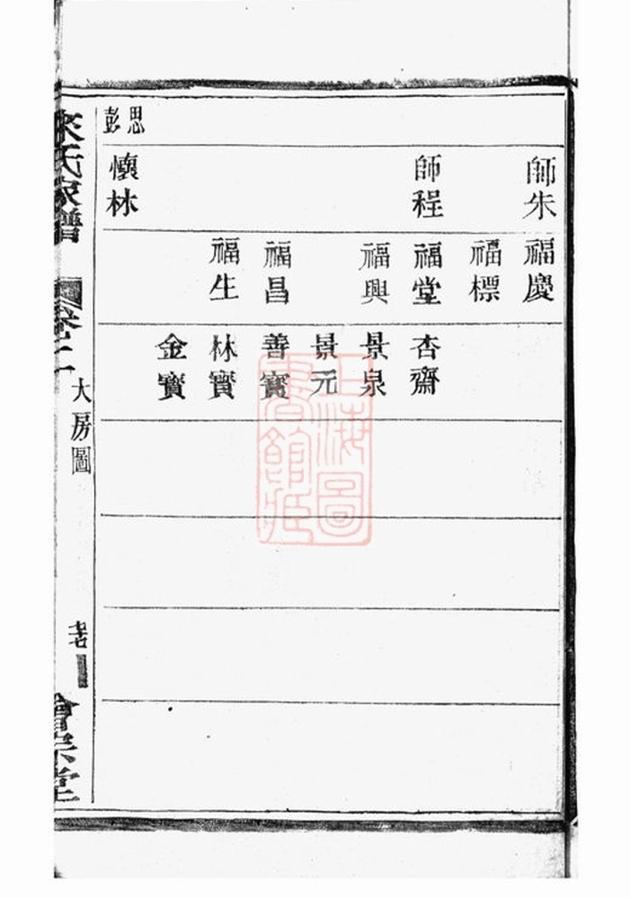 思彭
師朱
師程
懷林
福慶
福標
福堂
福興
福昌
福生
杏齋
景泉
景元
善寶
林寶
金寶
氏家譜
卷二
大房圖
會宗堂
上海圖書館藏